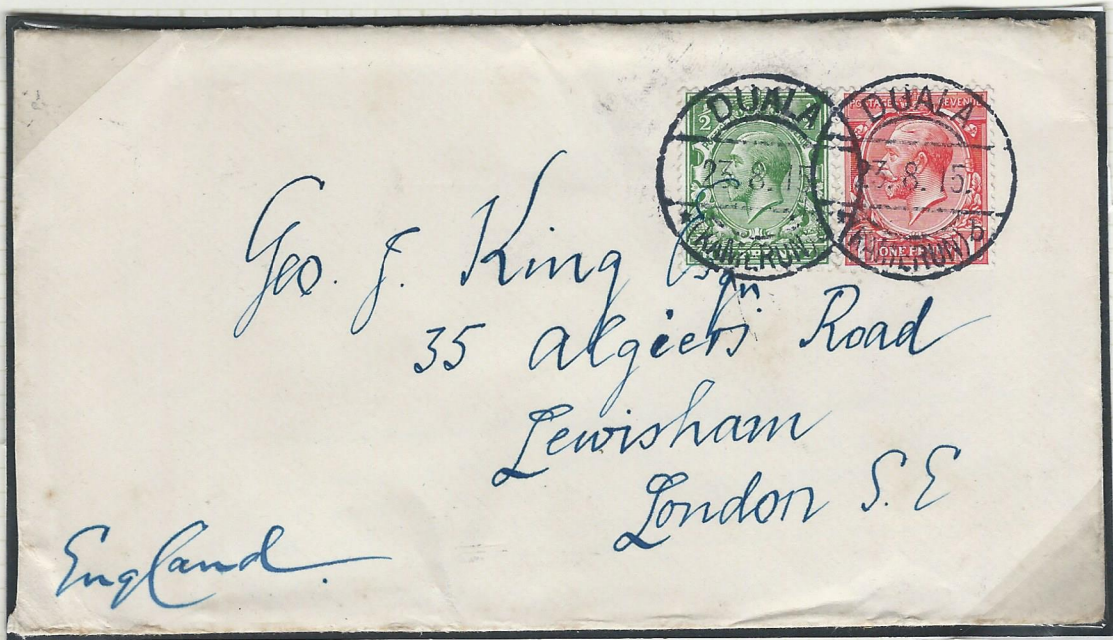 DUALA DUALA
23.8.15. 23.8.15.
(KAMERUN) (KAMERUN) b
POSTAGE REVENUE
ONE PENNY
Geo. J. King Esqr.
35 Algiers Road
Lewisham
London S.E
England.